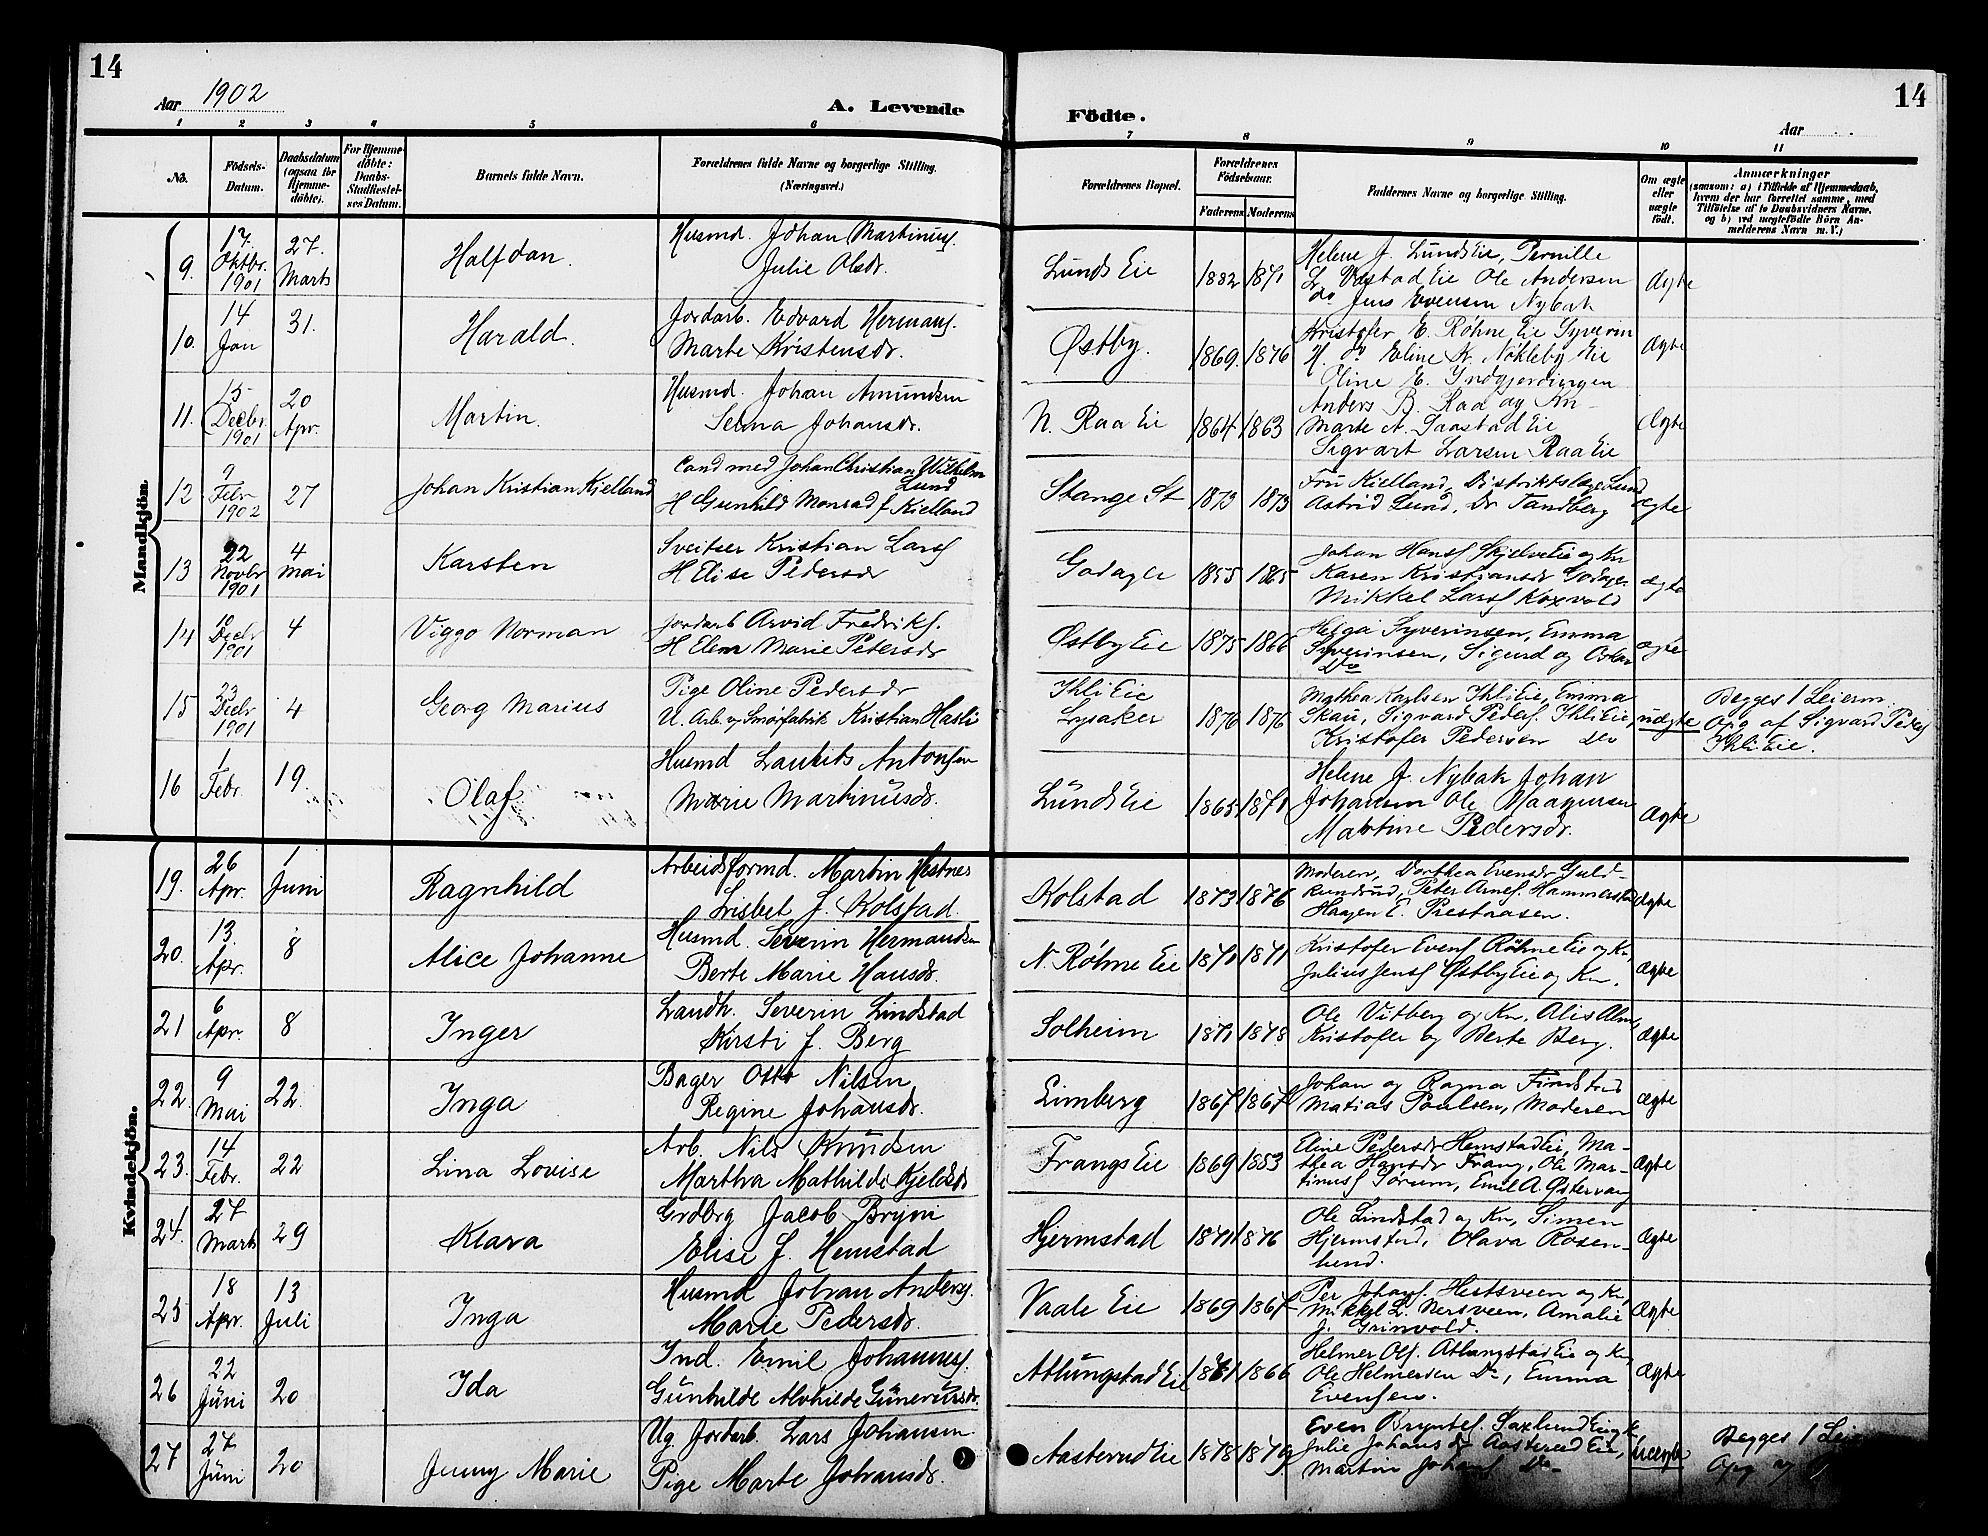 14
14
Aar 1902
A. Levende
Födte.
Aar
1 2 3 4 5 6 7 8 9 10 11
No.
Födsels-Datum.
Daabsdatum (ogsaa for Hjemme-döbte).
For Hjemme-döbte: Daabs-Stadfæstel-ses Datum.
Barnets fulde Navn.
Forældrenes fulde Navne og borgerlige Stilling. (Næringsvei.)
Forældrenes Bopæl.
Forældrenes Födselsaar.
Faderens Moderens
Faddernes Navne og borgerlige Stilling.
Om ægte eller uægte födt.
Anmærkninger
(saasom: a) i Tilfælde af Hjemmedaab, hvem der har forrettet samme, med Tilföielse af to Daabsvidners Navne, og b) ved uægtefödte Börn An-melderens Navn m. V.)
Mandkjön.
9. 17. Oktbr. 1901 27. Marts Halfdan. Husmd. Johan Martinus. Julie Olsdr. Lunds Eie 1882 1871 Helene J. Lunds Eie, Pernille Ole Andersen do Jens Evensen Nybak Ægte
10. 14 Jan 31. Harald. Jordarb. Edvard Hermans. Marte Kristensdr. Østby. 1869. 1876 Kristofer E. Røhne Eie Syverin H. do Eline K. Nökleby Eie Oline E. Yndgjerdingen Ægte
11. 15 Decbr. 1901 20 Apr. Martin. Husmd. Johan Amundsen Selma Johansdr. N. Raa Eie 1864 1863 Anders B. Raa og Kn Marte A. Saastad Eie Sigvart Larsen Raa Eie Ægte
12 9 Febr 1902 27 Johan Kristian Kielland Cand med Johan Christian Wilhelm Lund H Gunhild Monrad f Kielland Stange St 1873 1873 Fru Kielland, Distriktslæge Lund Astrid Lund, Dr Tandberg ægte
13 22 Novbr 1901 4 Mai Karsten Sveitser Kristian Lars H Elise Pedersdr Godager 1855 1865 Johan Hans Skjelve Eie og Kn Karen Kristiansdr Godager Mikkel Lars Koxvold ægte
14 10 Decbr 1901 4 Viggo Norman Jordarb Arvid Fredriks. H Elen Marie Petersdr Østby Eie 1875 1866 Helga Syverinsen, Emma Syverinsen, Sigurd og Oskar Do ægte
15 23 Decbr 1901 4 Georg Marius Pige Oline Pedersdr U. Arb. v Smørfabrik Kristian Hasli Ihli Eie Lysaker 1876 1876 Mathea Karlsen Ihli Eie, Emma Skau, Sigvard Peders. Ihli Eie, Kristofer Pedersen do uægte Begges 1 Leierm. Opg af Sigvard Peders Ihli Eie.
16 1 Febr. 19. Olaf Husmd Laurits Antonsen Marie Martinusdr. Lunds Eie 1865 1871 Helene J. Nybak Johan Johansen Ole Maagensen Martine Pedersdr. Ægte
Kvindekjön.
19. 26 Apr. 1 Juni Ragnhild Arbeidsformd. Martin Hestnes Lisbet f. Kolstad. Kolstad 1873 1876 Moderen, Dorthea Evensdr Guld-Peter Arnes. Hammerstad Haagen E. Prestaasen. Ægte
20. 13 Apr. 8 Alice Johanne Husmd. Severin Hermansen Berte Marie Hansdr. N. Røhne Eie 1870 1871 Kristofer Evens Røhne Eie og Kn, Julius Jens Østby Eie og Kn. Ægte
21 6 Apr. 8 Inger Landh. Severin Lindstad Kirsti f. Berg Solheim 1871 1878 Ole Vitberg og Kn, Alis Alm Kristofer og Berte Berg. Ægte
22. 9 Mai 22. Inga Bager Otto Nilsen Regine Johansdr. Limberg 1867 1867 Johan og Ragna Findstad Matias Paulsen, Moderen Ægte
23. 14 Febr. 22 Lina Lovise Arb. Nils Knudsen Martha Mathilde Kjeldsdr Frangs Eie 1869 1853 Eline Pedersdr Hemstad Eie, Ma-thea Hansdr Frang, Ole Mar-tinus Sørum, Emil A. Østervang Ægte
24. 27 Marts 29 Klara Grdbrg Jacob Bryni Elise f. Hemstad Hjermstad 1871 1876 Ole Lindstad og Kn, Simen Hjermstad, Olava Rosen-lund. Ægte
25 18 Apr. 13 Juli Inga Husmd Johan Anders. Marie Pedersdr. Vaale Eie 1869 1867 Per Johans. Hestsveen og Kn, Mikkel L. Nersveen, Amalie J. Grinvold. Ægte
26 22 Juni 20 Ida Ind. Emil Johannes. Gunhilde Alvhilde Gunerusdr. Atlungstad Eie 1861 1866 Helmer Ols. Atlungstad Eie og Kn, Ole Helmersen Do, Emma Evensen. Ægte
27 27 Juni 20 Jenny Marie Ug Jordarb. Lars Johansen Pige Marte Johansdr. Aasterud Eie 1878 1879 Even Bryntes. Saxlund Eie, Julie Johansdr Aasterud Eie, Martin Johans Do Uægte Begges 1 Leie Opg af